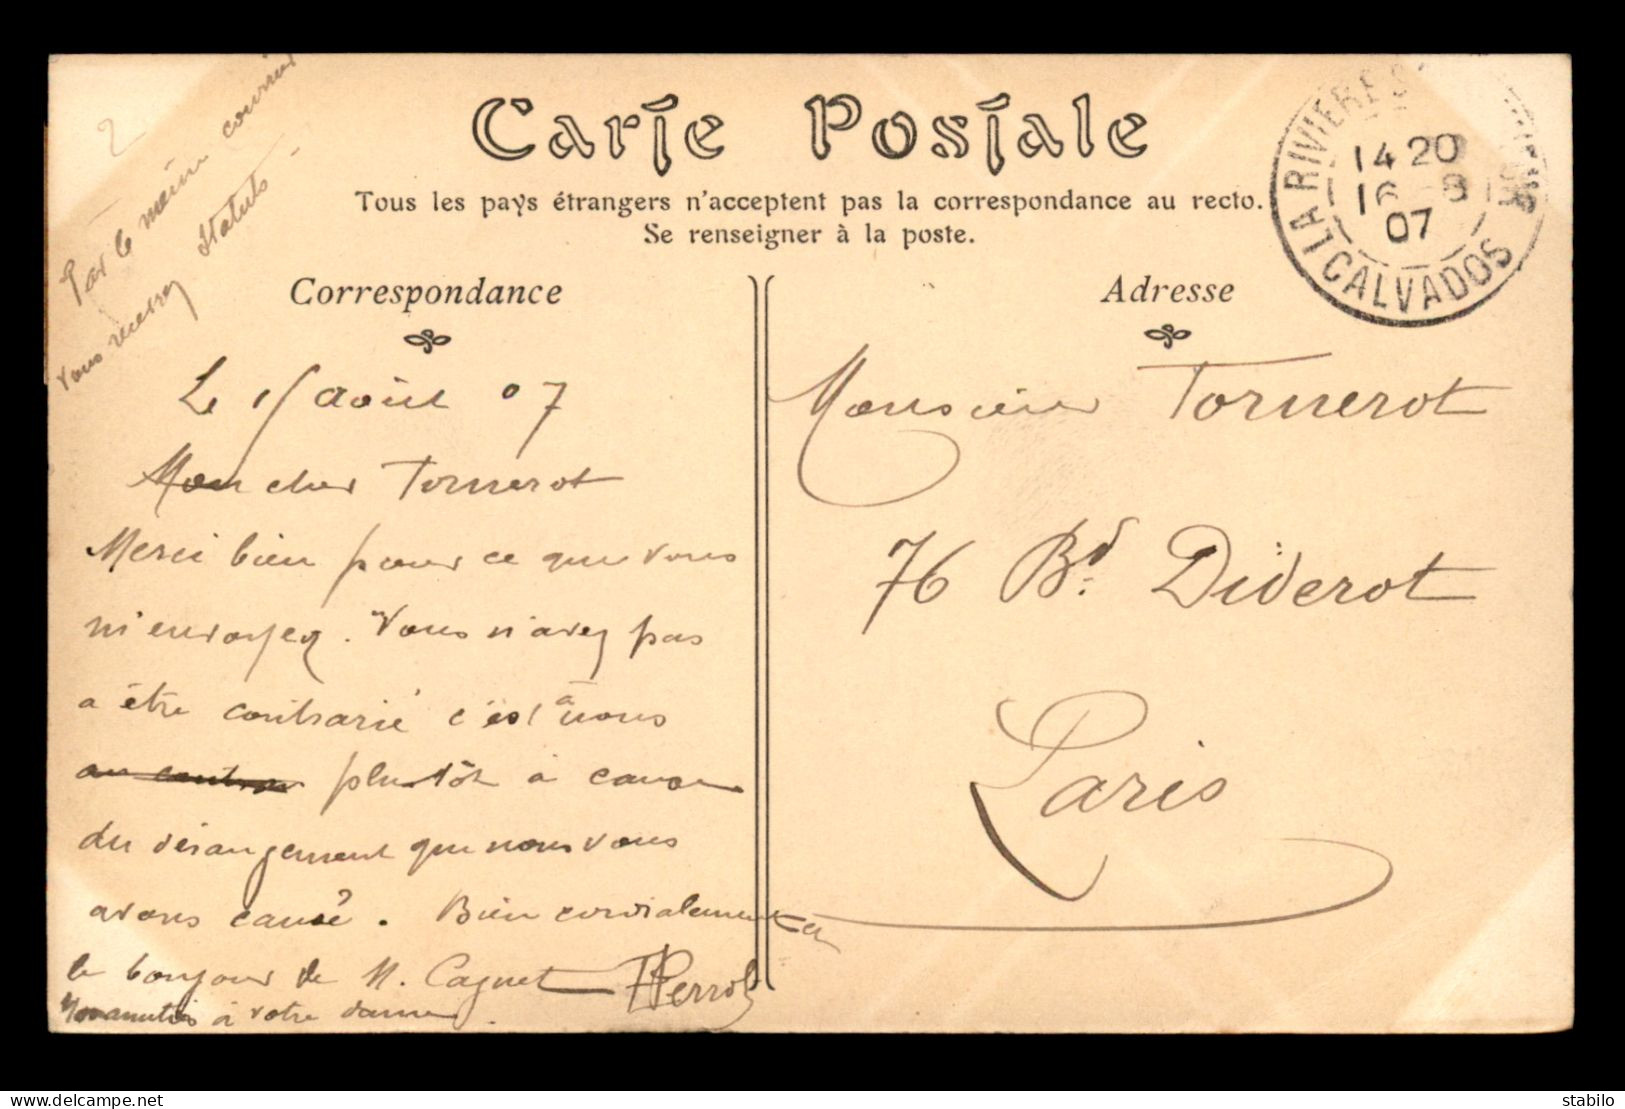 2
Par le même courrier
vous verrez Statuts
Carte Postale
Tous les pays étrangers n'acceptent pas la correspondance au recto.
Se renseigner à la poste.
LA RIVIERE
CALVADOS
14 20
16 8
07
Correspondance
Adresse
Le 15 août 07
Mon cher Tornerot
Merci bien pour ce que vous
m'envoyez. Vous n'avez pas
a être contrarié c'est à nous
au contr plutôt à cause
du dérangement que nous vous
avons causé. Bien cordialement et
le bonjour de M. Cagnet Perrot
nos amitiés à votre dame.
Monsieur Tornerot
76 Bd. Diderot
Paris
delcampe.net
Stabilo